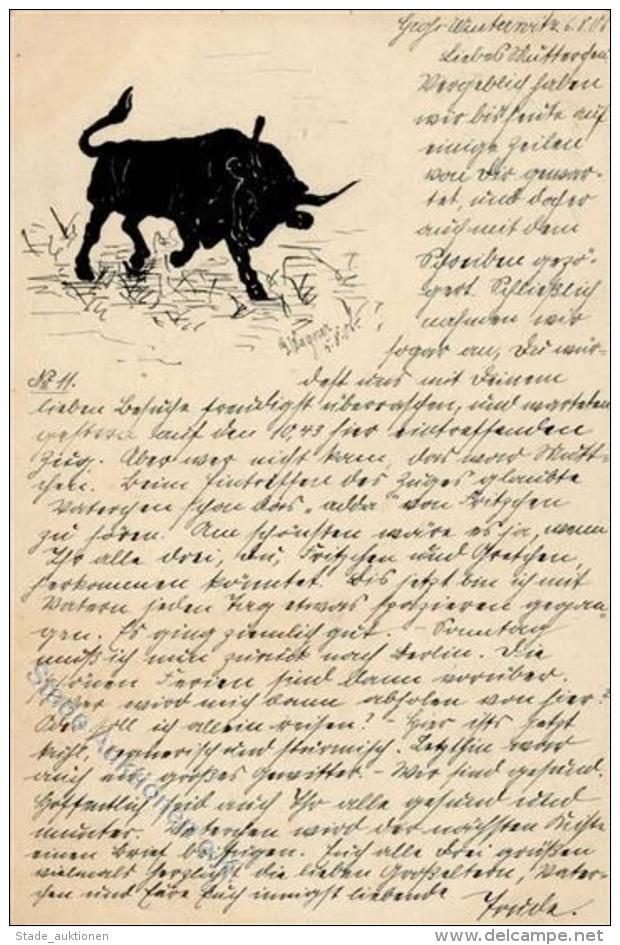 Groß-Winterwitz 6.8.06
Liebes Mutterchen,
Vergeblich haben
wir bis heute auf
einige Zeilen
von Dir gewar-
tet, und daher
auch mit dem
Schreiben gezö-
gert. Schließlich
nahmen wir
sogar an, Du wür-
G. Wagner
5.8.06.
№ 11.
dest uns mit Deinem
lieben Besuche freudigst überraschen, und warteten
gestern auf den 10,43 hier eintreffenden
Zug. Aber wer nicht kam, das war Mutt-
chen. Beim Eintreffen des Zuges glaubte
Vaterchen schon das „adda" von Fritzchen
zu hören. Am schönsten wäre es ja, wenn
Ihr alle drei, Du, Fritzchen und Gretchen,
herkommen könntet. Bis jetzt bin ich mit
Vatern jeden Tag etwas spazieren gegan-
gen. Es ging ziemlich gut. - Sonntag
muß ich nun zurück nach Berlin. Die
schönen Ferien sind dann vorüber.
Wer wird mich dann abholen von hier?
Oder soll ich allein reisen? - Hier ists jetzt
kühl, regnerisch und stürmisch. Letzthin war
auch ein großes Gewitter. - Wir sind gesund.
Hoffentlich seid auch Ihr alle gesund und
munter. Vaterchen wird der nächsten Kiste
einen Brief beifügen. Euch alle drei grüßen
vielmals herzlichst die lieben Großeltern, Vater-
chen und Eure Euch innigst liebende
Trude.
Stade Auktionen
Stade_auktionen
www.delcampe.net